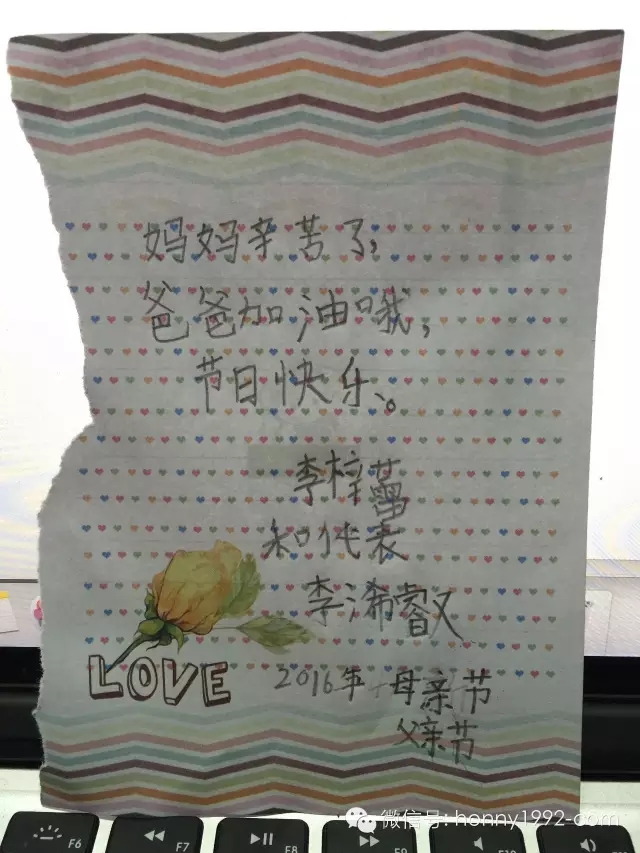 妈妈辛苦了，
爸爸加油哦，
节日快乐、。
李梓蕾
和代表
李浠睿又
LOVE
2016年 母亲节
父亲节
微信号: honny1992-com
F6
F7
F8
F9